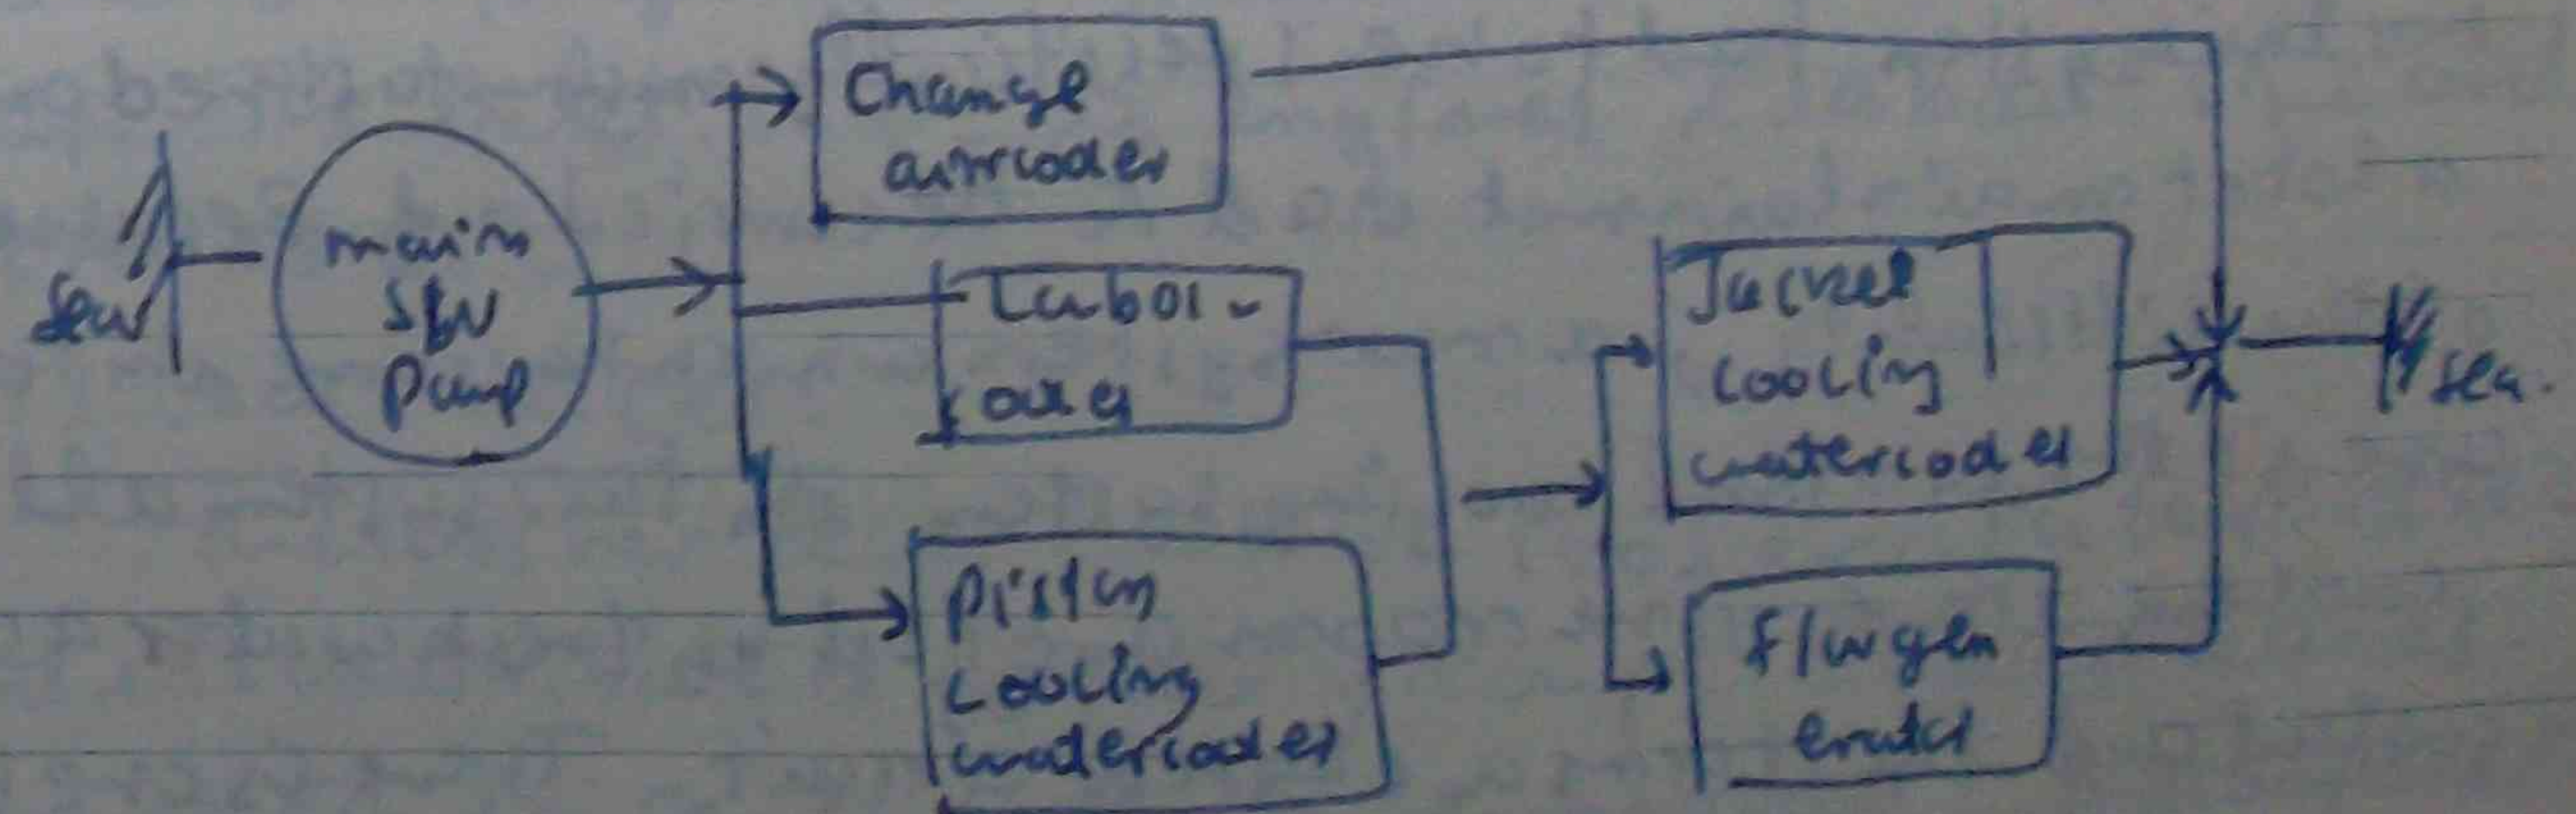 Sea
main
S/W
Pump
Charge
aircooler
Luboi-
cooler
Piston
Cooling
watercooler
Jacket
cooling
watercooler
f/w gen
erator
sea.